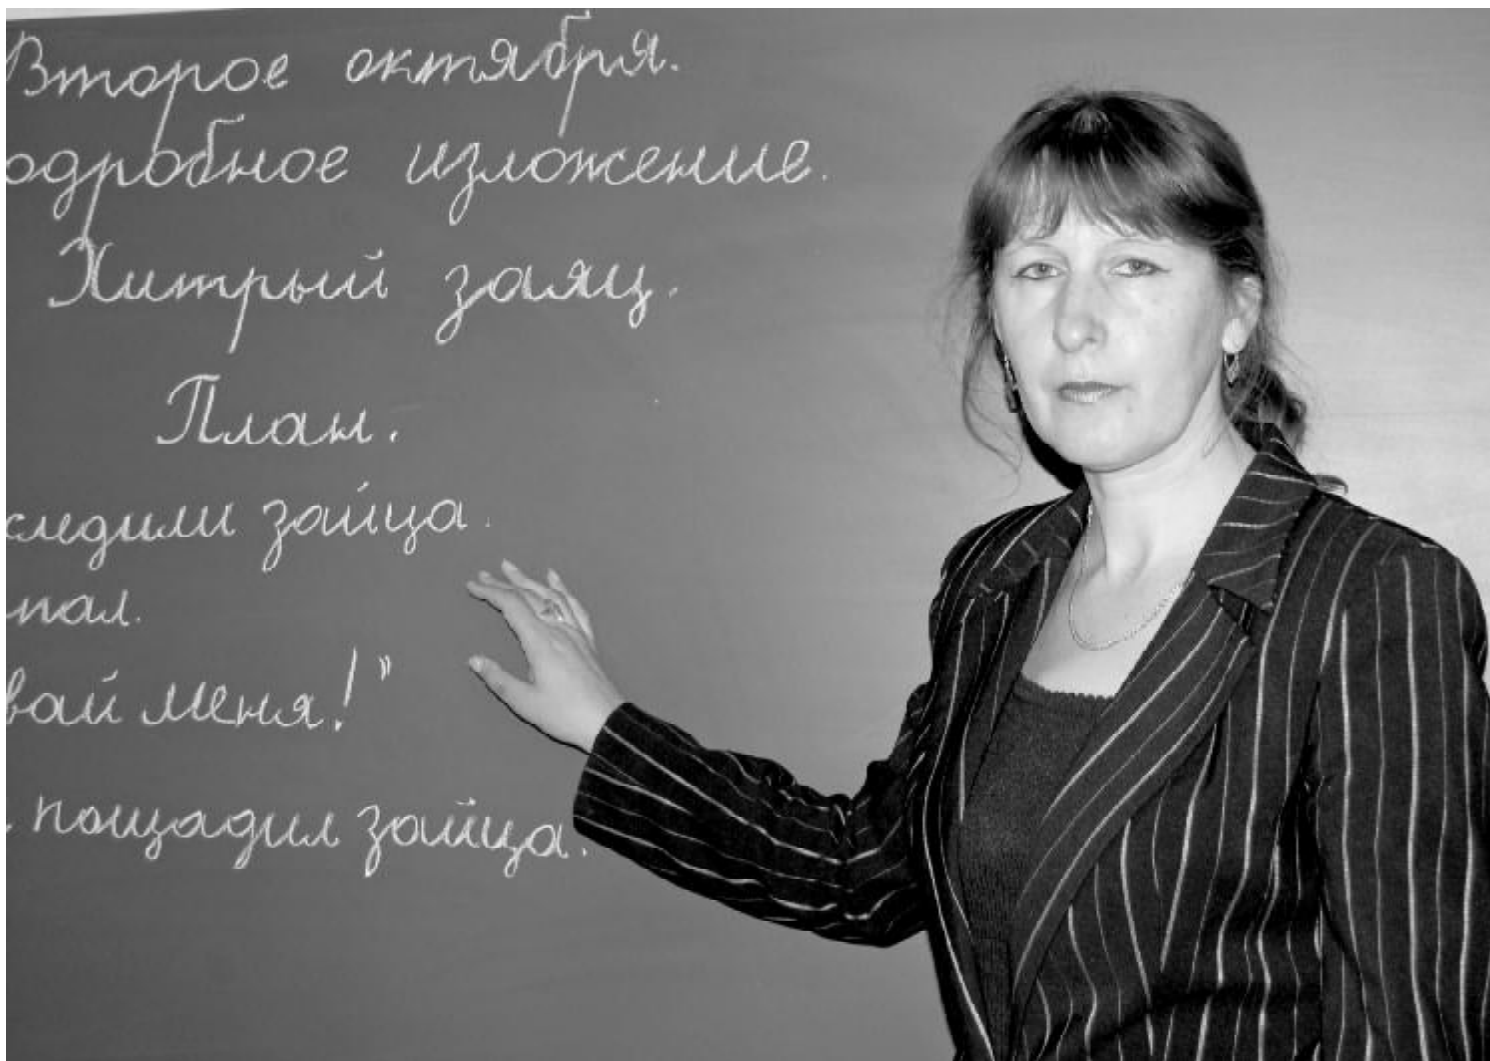 Второе октября.
одробное изложение.
Хитрый заяц.
План.
следили зайца.
пал.
вай меня!"
пощадил зайца.